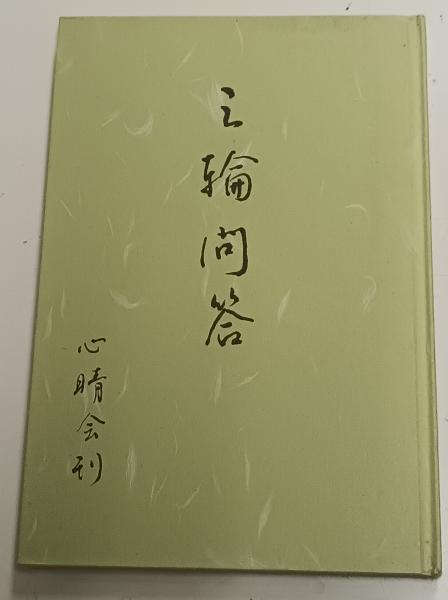 三輪問答
心晴会刊